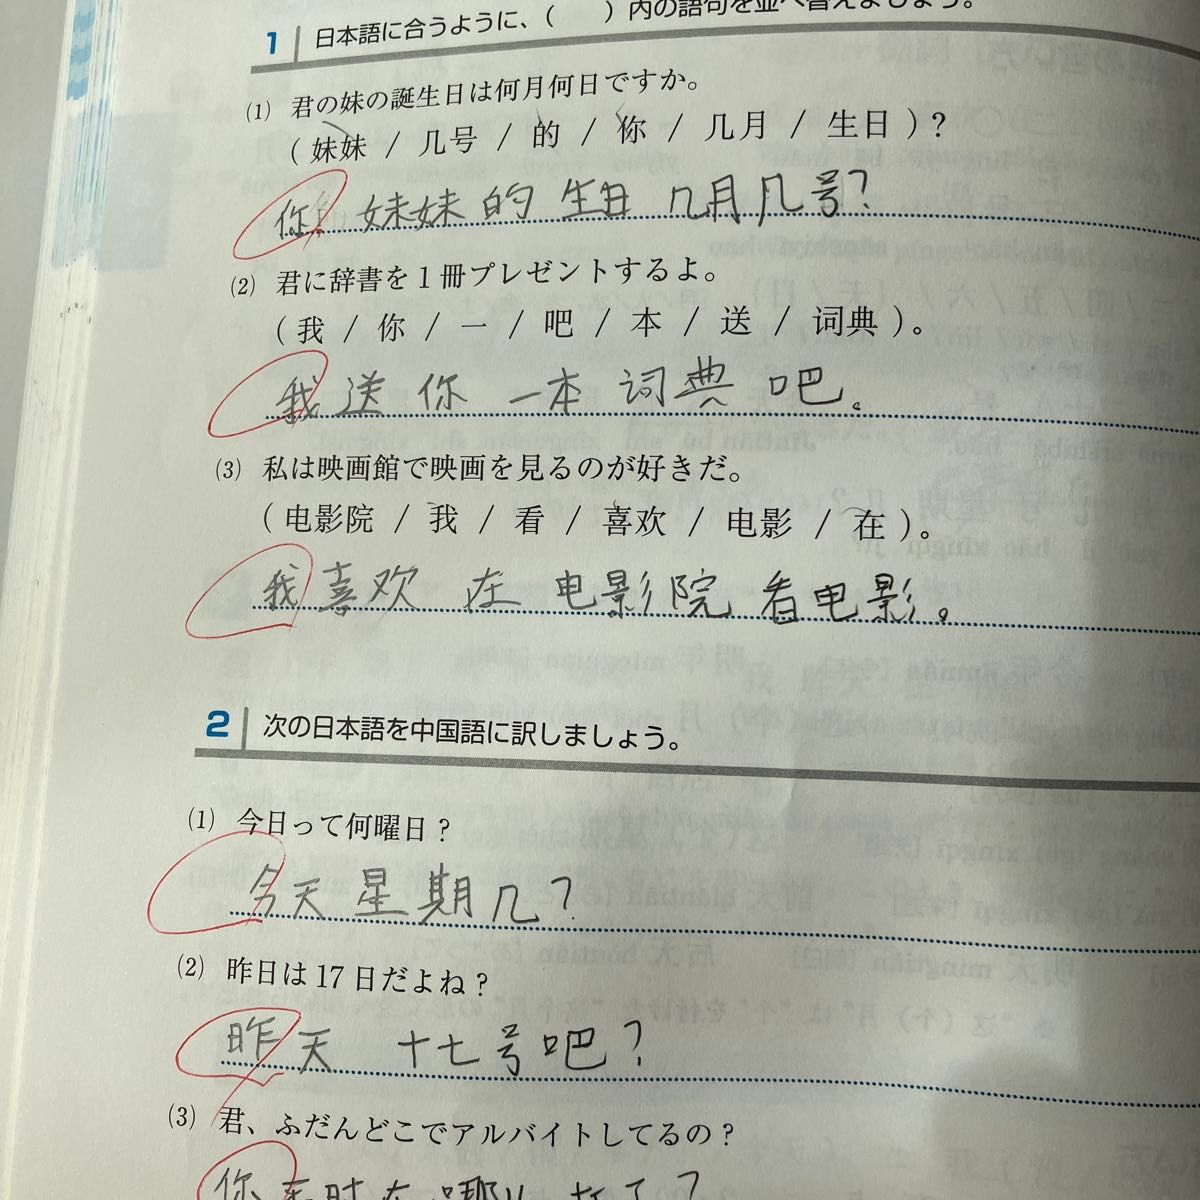 1 日本語に合うように、（ ）内の語句を並べ替えましょう。
(1) 君の妹の誕生日は何月何日ですか。
（ 妹妹 / 几号 / 的 / 你 / 几月 / 生日 ）？
你 妹妹 的 生日 几月几号？
(2) 君に辞書を1冊プレゼントするよ。
（ 我 / 你 / 一 / 吧 / 本 / 送 / 词典 ）。
我 送 你 一本 词典 吧。
(3) 私は映画館で映画を見るのが好きだ。
（ 电影院 / 我 / 看 / 喜欢 / 电影 / 在 ）。
我 喜欢 在 电影院 看电影。
2 次の日本語を中国語に訳しましょう。
(1) 今日って何曜日？
今天 星期几？
(2) 昨日は17日だよね？
昨天 十七号吧？
(3) 君、ふだんどこでアルバイトしてるの？